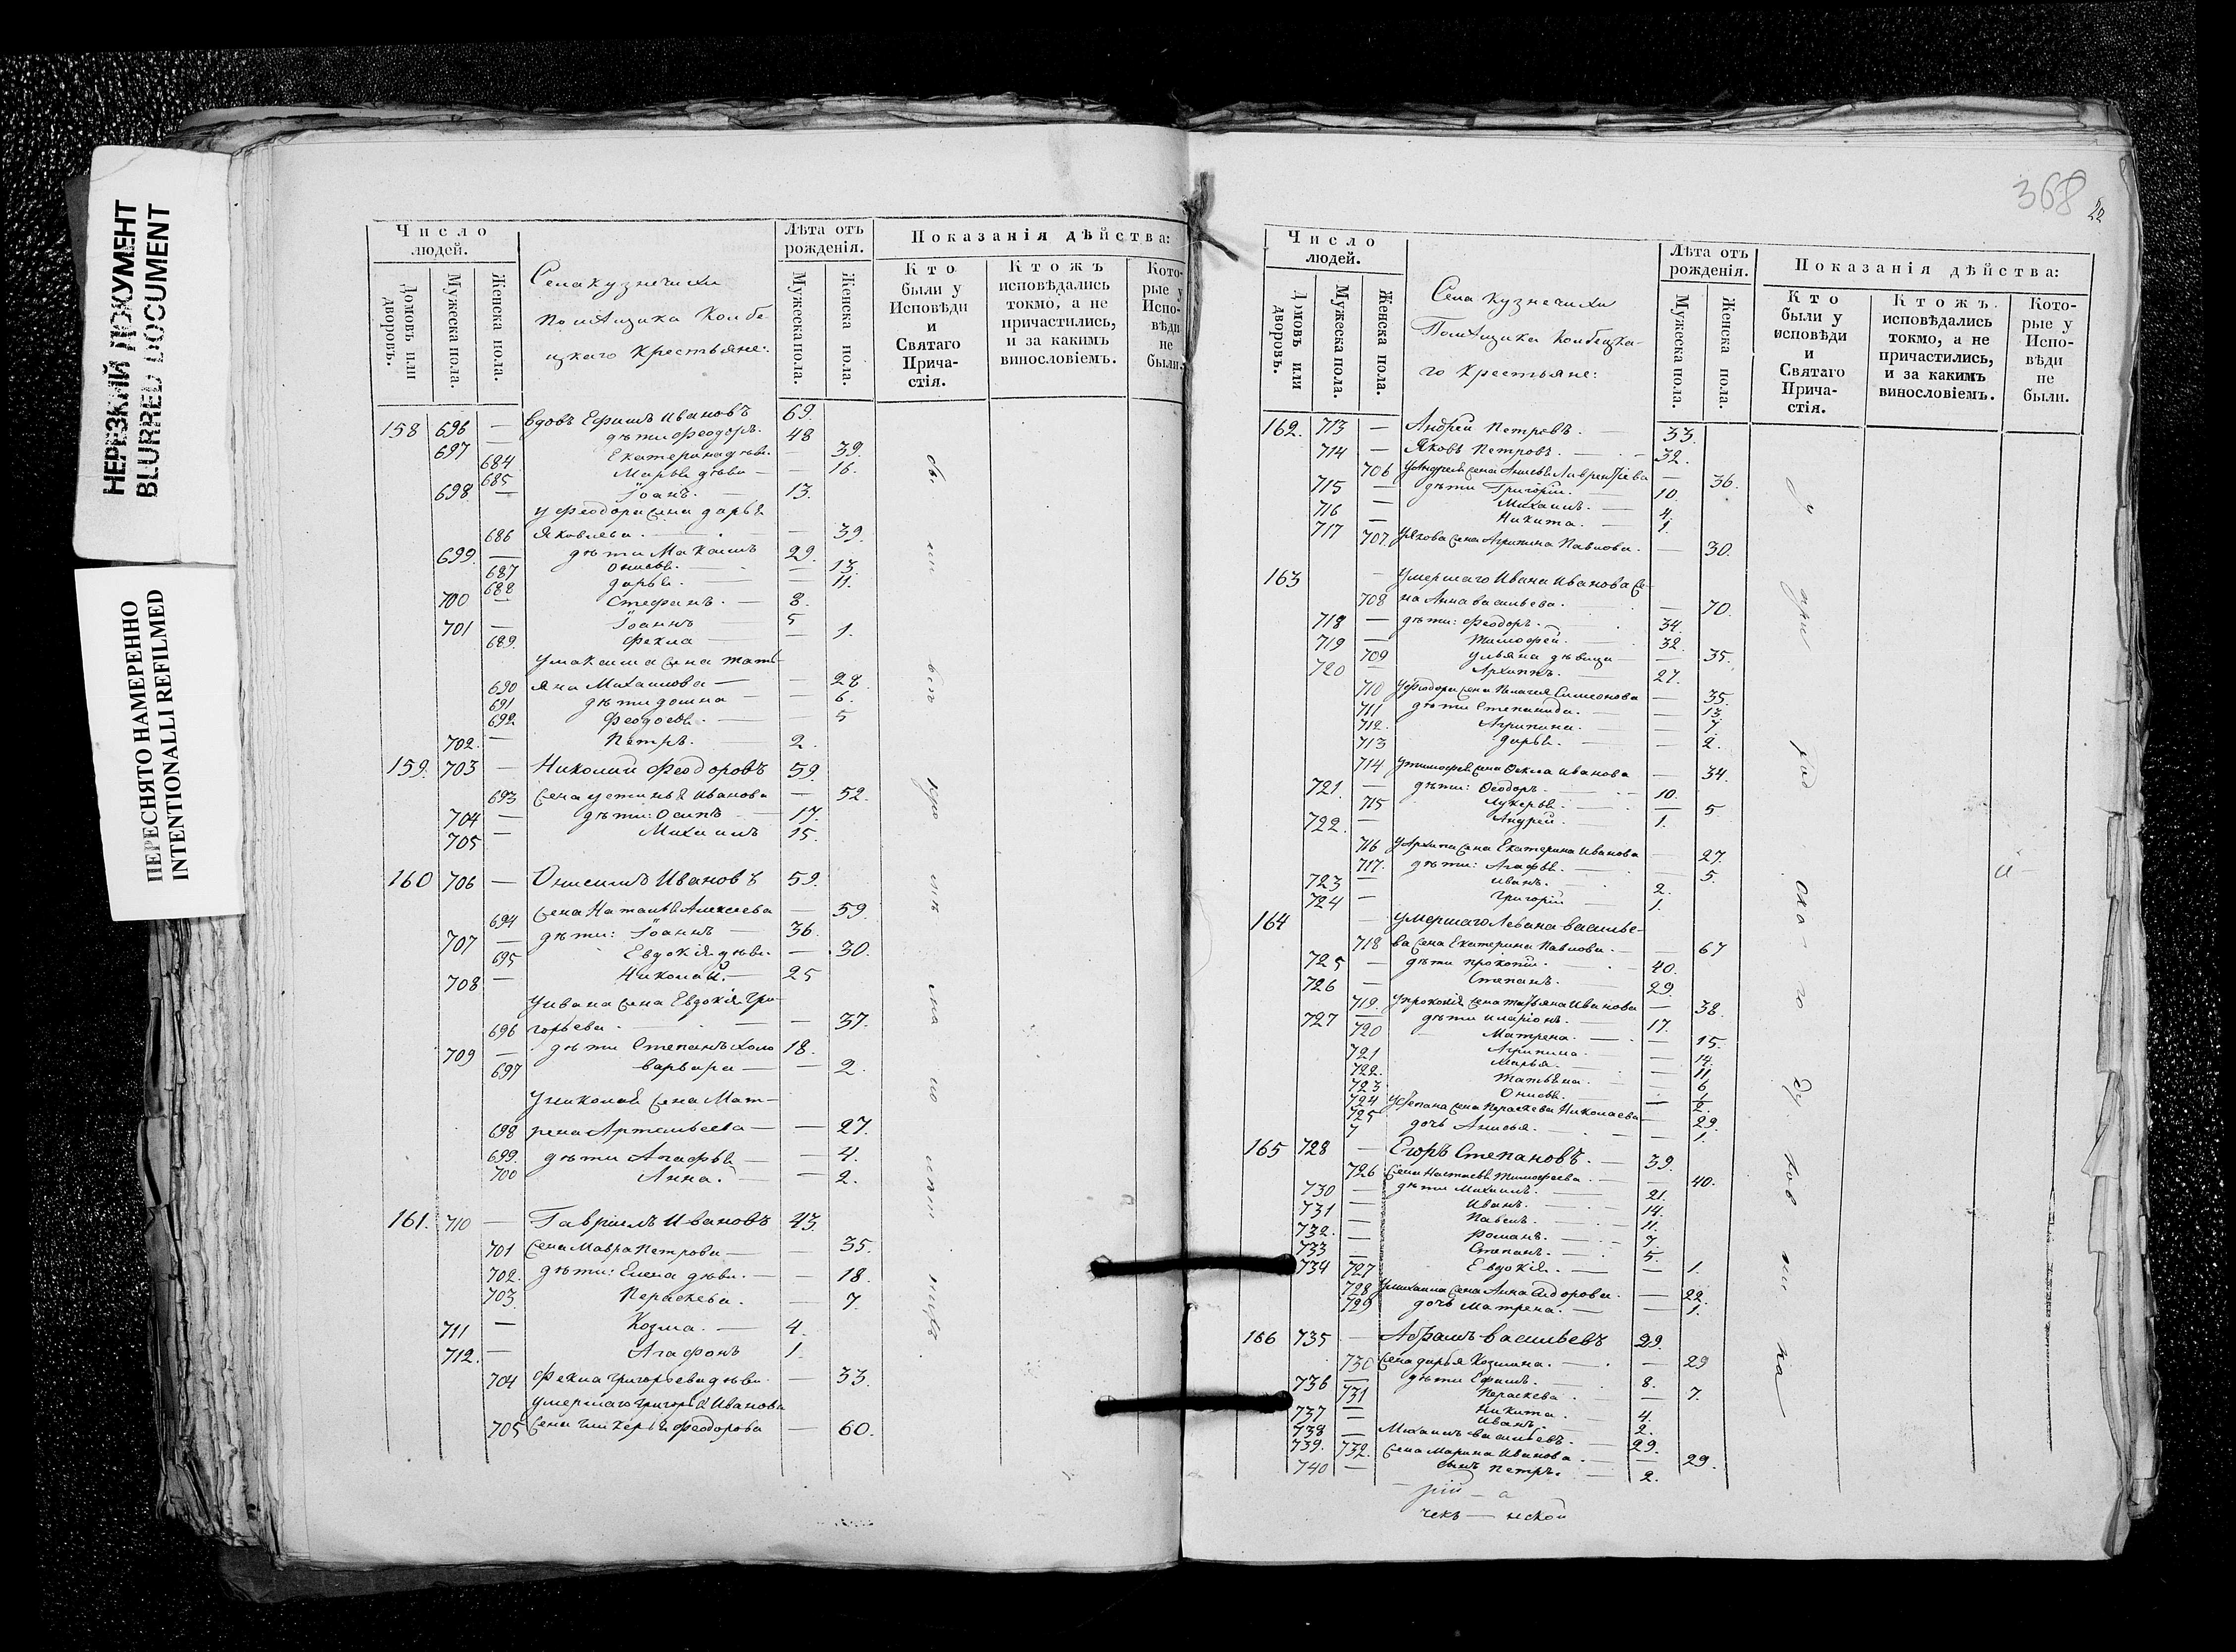 НЕРЕЗКИЙ ДОКУМЕНТ
BLURRED DOCUMENT
ПЕРЕСНЯТО НАМЕРЕННО
INTENTIONALLI REFILMED
Число людей.
Домовъ или дворовъ.
Мужеска пола.
Женска пола.
Села Кузнечихи
помѣщика Колбе
цкаго Крестьяне:
Лѣта отъ рожденія.
Мужеска пола.
Женска пола.
Показанія дѣйства:
Кто были у Исповѣди и Святаго Прича-стія.
Ктожъ исповѣдались токмо, а не причастились, и за какимъ винословіемъ.
Кото-рые у Испо-вѣди не были.
158 696 — вдовъ Ефимъ Ивановъ 69.
697 — дѣти Феодоръ. 48
684 Екатерина дѣви. — 39.
685 Марья дѣви — — 16.
698 — Іоанъ. — 13.
у Феодора жена дарья
686 Яковлева. — — 39.
699. — дѣти Макаимъ 29.
687 Онисья. — — 13.
688 дарья. — — 11.
700 — Стефанъ. — 8.
701 — Іоаннъ — 5
689. Фекла — — 1.
у макаима жена тать
690 яна Михаилова — — 28.
691 дѣти домна — — 6.
692 Феодосья. — — 5
702. — Петръ. — 2.
159. 703 — Николай Феодоровъ 59.
693 жена устинья Иванова — 52.
704 — дѣти: Осипъ — 17.
705 — Михаилъ 15.
160 706 — Онисимъ Ивановъ 59.
694 жена Наталья Алексеева — 59.
707 — дѣти: Іоаннъ — 36.
695 Евдокія дѣви. — 30.
708 — Николай. — 25
У ивана жена Евдокія Гри-
696 горьева. — — 37.
709 — дѣти Степанъ холо 18.
697 варвара — — 2.
У николая жена Мат-
698 рена Артемьева — — 27.
699. дѣти Агафья — — 4.
700 Анна. — — 2.
161. 710 — Гавріилъ Ивановъ 43.
701 жена Мавра Петрова — 35.
702. дѣти: Елена дѣви. — — 18.
703 Пераскева. — 7.
711 — Козма. — 4.
712. — Агафонъ 1.
704 Фекла григорьева дѣви. — 33.
умершаго григорья Иванова
705 жена гликерья Феодорова — 60.
368
22
Число людей.
Домовъ или дворовъ.
Мужеска пола.
Женска пола.
Села Кузнечихи
Помѣщика Колбецка-
го Крестьяне:
Лѣта отъ рожденія.
Мужеска пола.
Женска пола.
Показанія дѣйства:
Кто были у исповѣди и Святаго Прича-стія.
Ктожъ исповѣдались токмо, а не причастились, и за какимъ винословіемъ.
Кото-рые у Испо-вѣди не были.
162. 713 — Андрей Петровъ. — 33.
714 — Яковъ Петровъ. — 32.
706 у Андрея жена Анисья Лаврентіева — 36.
715 — дѣти Григорій. 10.
716 — Михаилъ. — 4.
717 — Никита. — 1.
707. у Якова жена Агрипина Павлова. — 30.
163 — умершаго Ивана Иванова же-
708 на Анна васильева. — 70.
718 — дѣти: Феодоръ. — 34.
719 — тимофей. — 32.
709 ульяна дѣвица — — 35.
720 — Архипъ. — 27.
710 у Феодора жена Пелагея Симионова — 35.
711 дѣти Степанида. — — 13.
712. Агрипина. — — 7.
713 дарья. — — 2.
714 у тимофея жена Фекла Иванова — 34.
721. — дѣти: Феодоръ. — 10.
715 Лукерья. — — 5
722. — Андрей. — 1.
716 у Архипа жена Екатерина Иванова — 27.
717. дѣти: Агафья. — — 5.
723 — иванъ. — 2.
724 — григорій — 1.
164 — умершаго Левана василье-
718 ва жена Екатерина Павлова. — — 67
725 — дѣти прокопій. — 40.
726 — Степанъ. — 29.
719. у прокопія жена татьяна Иванова — 38.
727 — дѣти иларіонъ. — 17.
720 Матрена. — — 15.
721 Агрипина. — — 14.
722. марья. — — 11
723 татьяна. — — 6
724 Онисья. — — 2.
725 у Степана жена Параскева Николаева — 29.
7 дочь Анисья. — — 1.
165 728 — Егоръ Степановъ. — 39.
726 жена Настасья Тимофеева. — — 40.
730 — дѣти Михаилъ. — 21.
731 — Иванъ. — 14.
732. — Павелъ. — 11.
733 — романъ. — 7.
734 — Степанъ. — 5.
727 Евдокія. — — 1.
728 у михаила жена Анна Сидорова. — 22.
729 дочь Матрена. — — 1.
166 735 — Абрамъ васильевъ 29.
730 жена дарья Козмина. — — 29
736 — дѣти Ефимъ. — 8.
731 Пераскева. — — 7.
737 — Никита. — 4.
738 — Иванъ. — 2.
739. — Михаилъ васильевъ. — 29.
732. жена Марина Иванова. — — 29.
740 — сынъ петръ. — 2.
рій — а
чекъ — нской